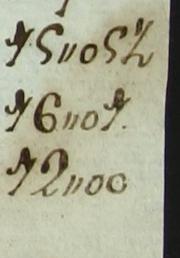 15"05½
16"01.
12"00